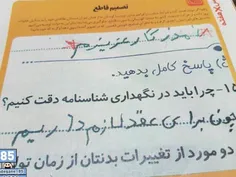 تصمیم قاطع
مادر کار عزیزم
پاسخ کامل بدهید.
۱- چرا باید در نگهداری شناسنامه دقت کنیم؟
چون برای عقد لازم داریم
دو مورد از تغییرات بدنتان از زمان تو